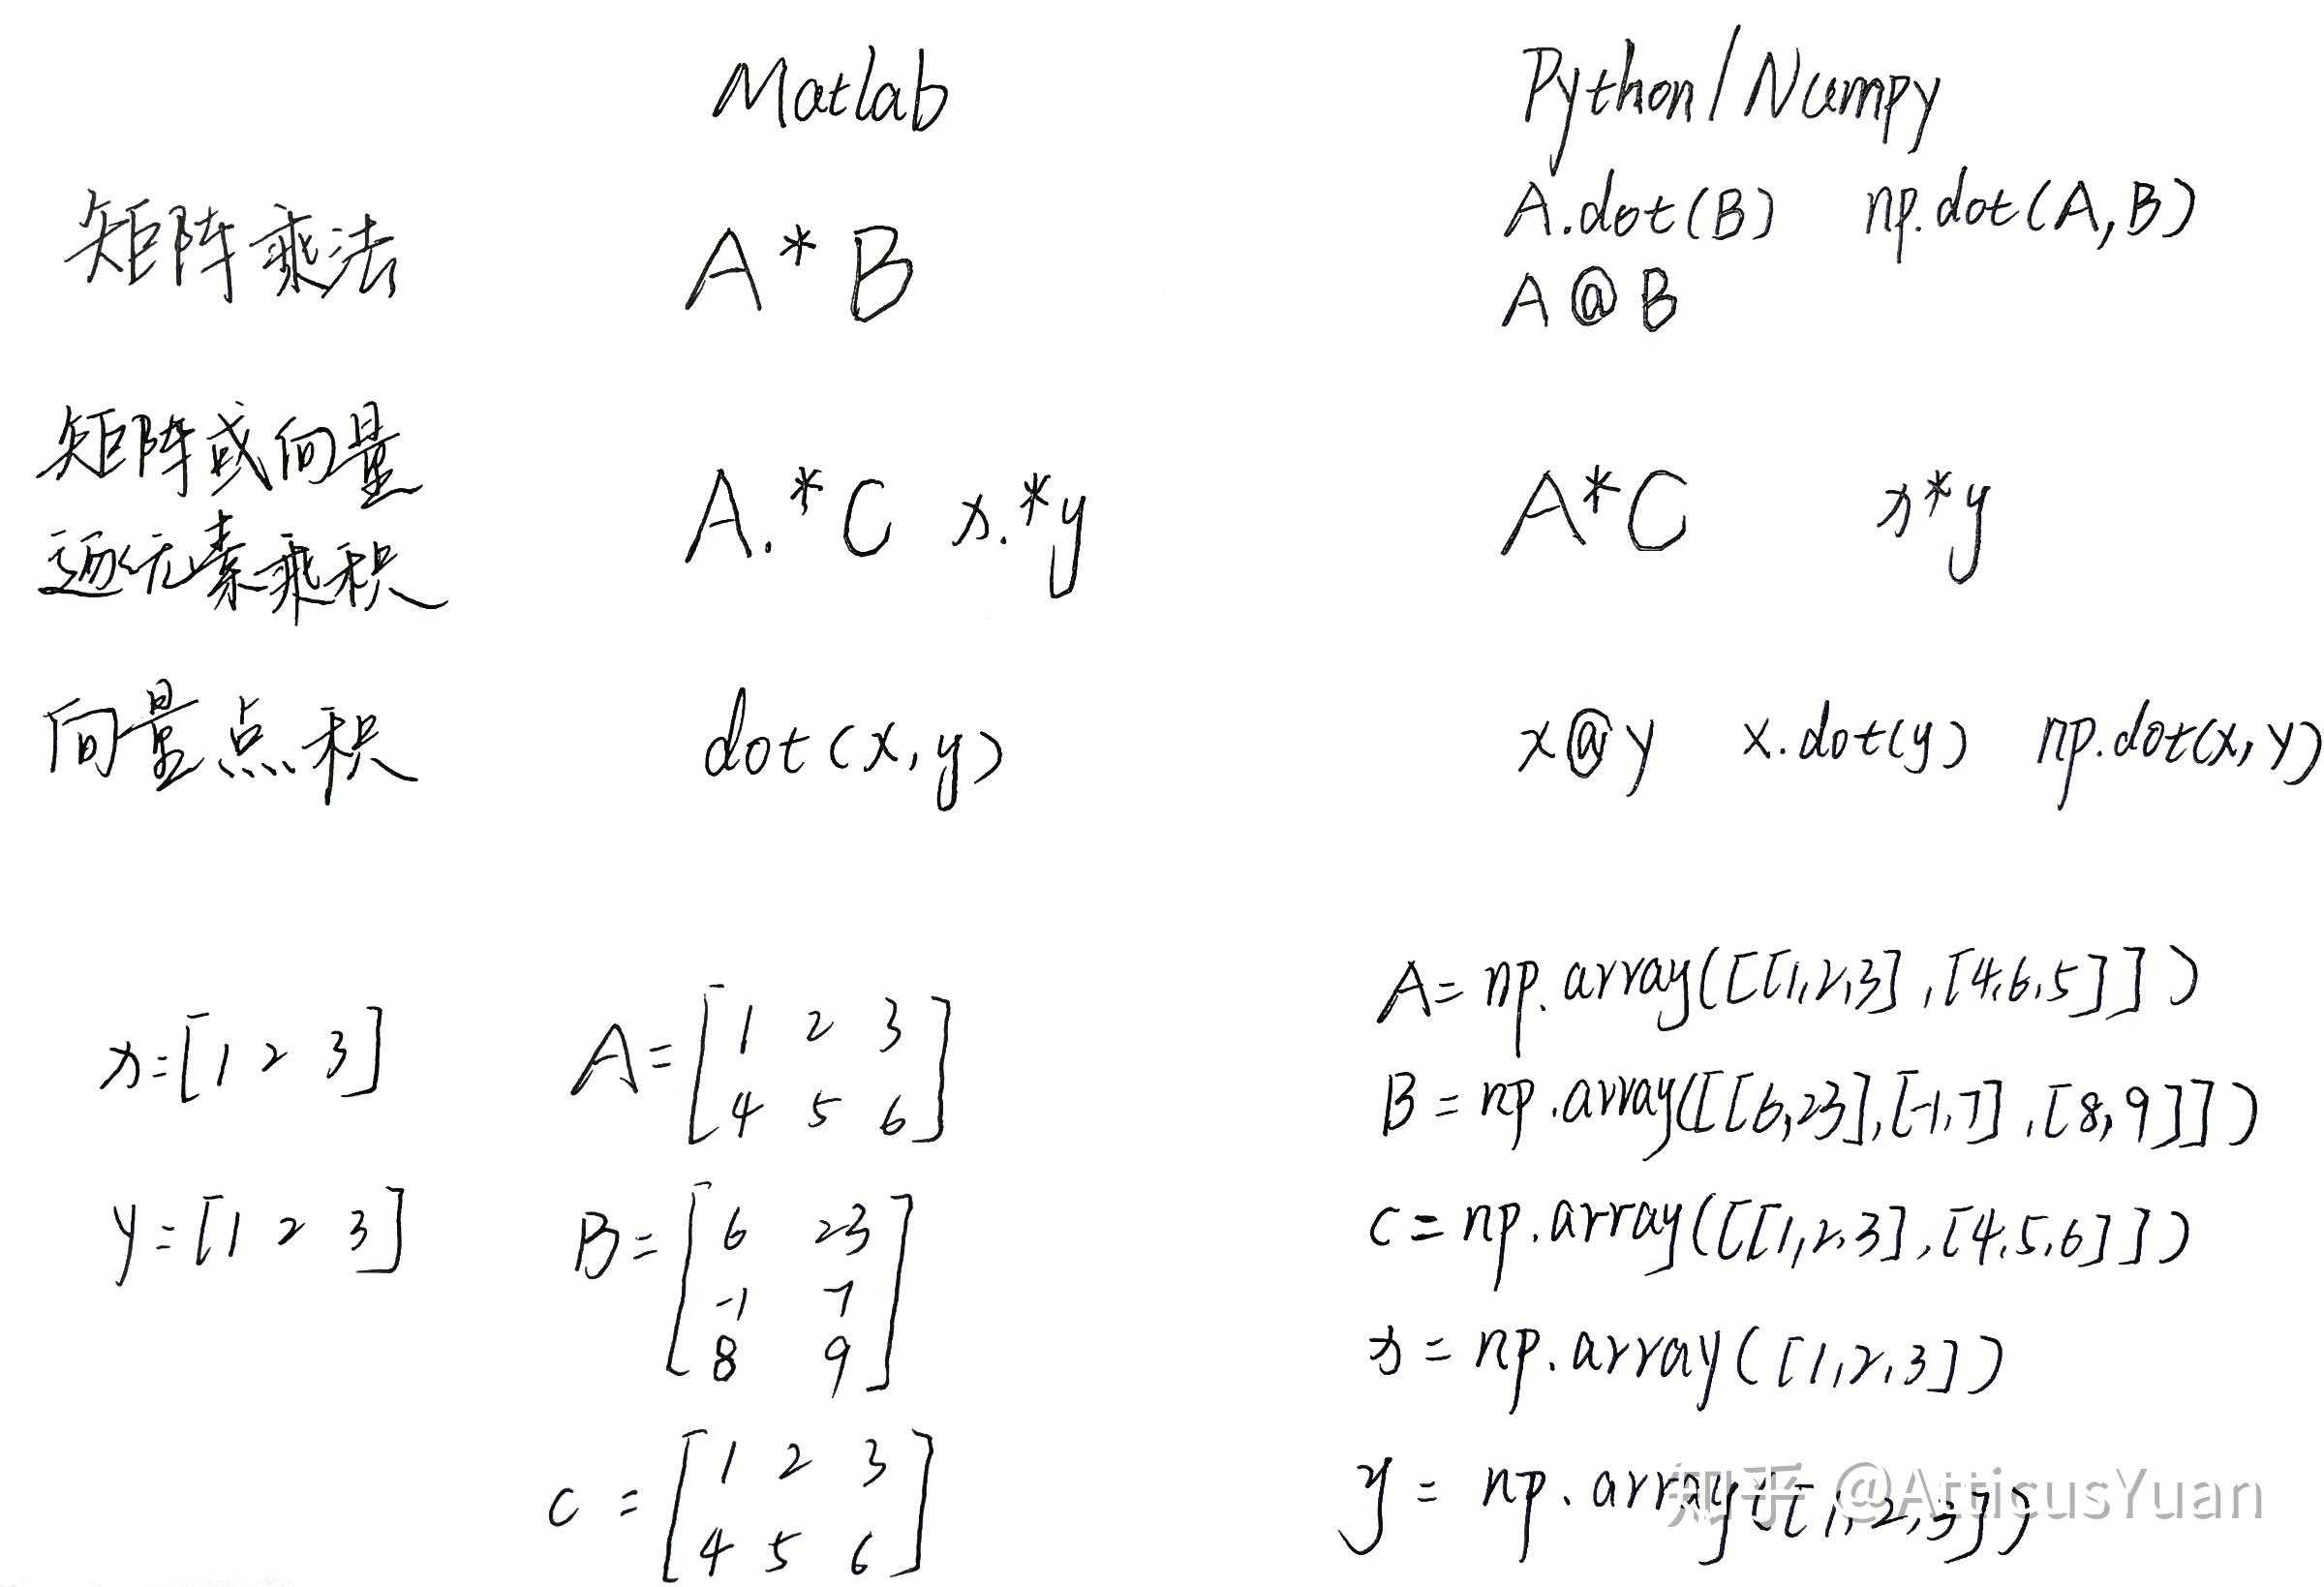 Matlab Python/Numpy
矩阵乘法 A*B A.dot(B) np.dot(A,B)
A@B
矩阵或向量
逐元素乘积 A.*C x.*y A*C x*y
向量点积 dot(x,y) x@y x.dot(y) np.dot(x,y)
x=[1 2 3]
y=[1 2 3]
A=[1 2 3
4 5 6]
B=[6 23
-1 7
8 9]
C=[1 2 3
4 5 6]
A=np.array([[1,2,3],[4,6,5]])
B=np.array([[6,23],[-1,7],[8,9]])
C=np.array([[1,2,3],[4,5,6]])
x=np.array([1,2,3])
y=np.array([1,2,3])
知乎 @AtticusYuan